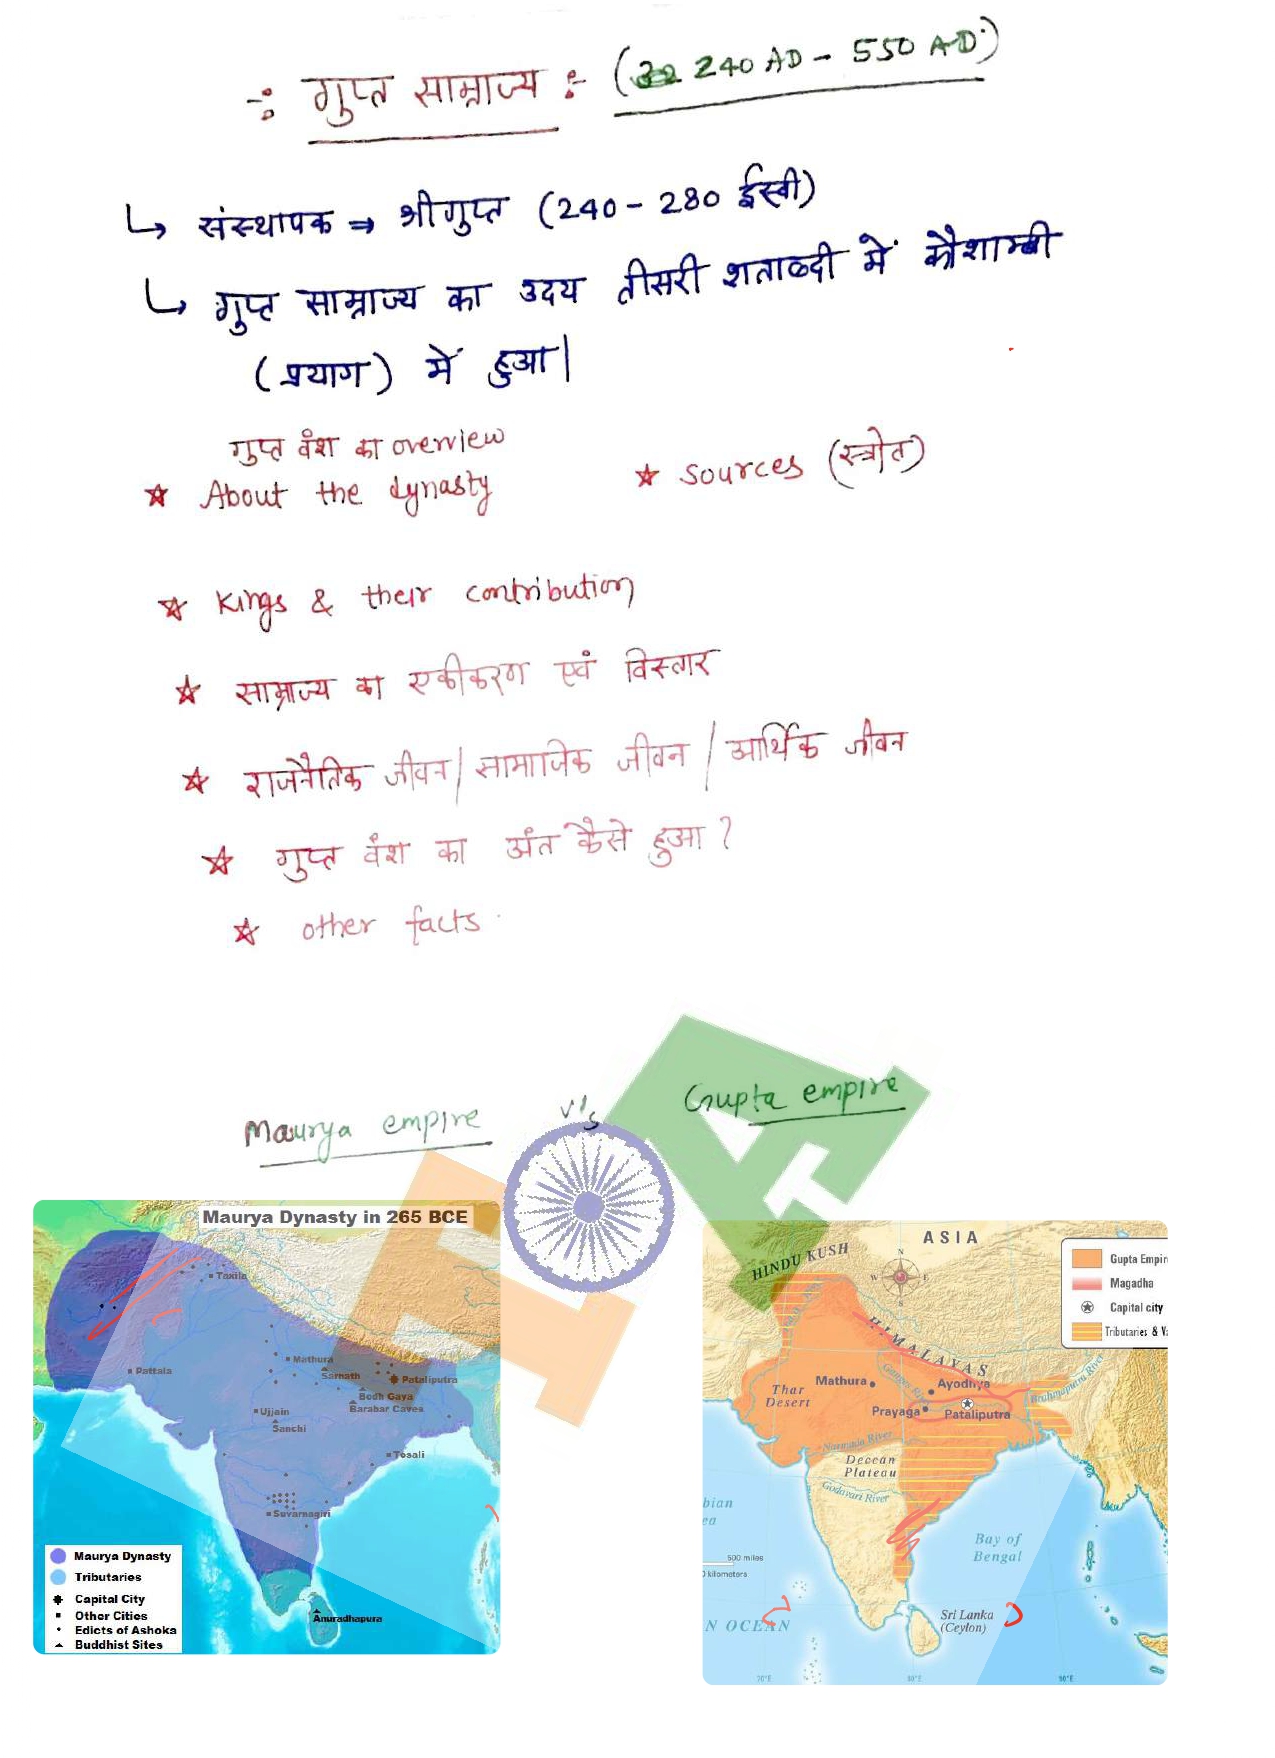 -: गुप्त साम्राज्य :- (240 AD - 550 AD)
↳ संस्थापक ⇒ श्रीगुप्त (240 - 280 ईस्वी)
↳ गुप्त साम्राज्य का उदय तीसरी शताब्दी में कौशाम्बी
(प्रयाग) में हुआ|
गुप्त वंश का overview
☆ About the dynasty
☆ Sources (स्त्रोत)
☆ Kings & their contribution
☆ साम्राज्य का एकीकरण एवं विस्तार
☆ राजनैतिक जीवन / सामाजिक जीवन / आर्थिक जीवन
☆ गुप्त वंश का अंत कैसे हुआ ?
☆ other facts
Maurya empire v/s Gupta empire
Maurya Dynasty in 265 BCE
Taxila
Pattala
Mathura
Sarnath
Pataliputra
Bodh Gaya
Barabar Caves
Ujjain
Sanchi
Tosali
Suvarnagiri
Anuradhapura
Maurya Dynasty
Tributaries
Capital City
Other Cities
Edicts of Ashoka
Buddhist Sites
ASIA
HINDU KUSH
N
W E
S
Gupta Empir
Magadha
Capital city
Tributaries & Va
HIMALAYAS
Thar
Desert
Mathura
Ayodhya
Prayaga
Pataliputra
Ganges River
Brahmaputra River
Narmada River
Deccan
Plateau
Godavari River
bian
ea
500 miles
kilometers
Bay of
Bengal
N OCEAN
Sri Lanka
(Ceylon)
70°E
80°E
90°E